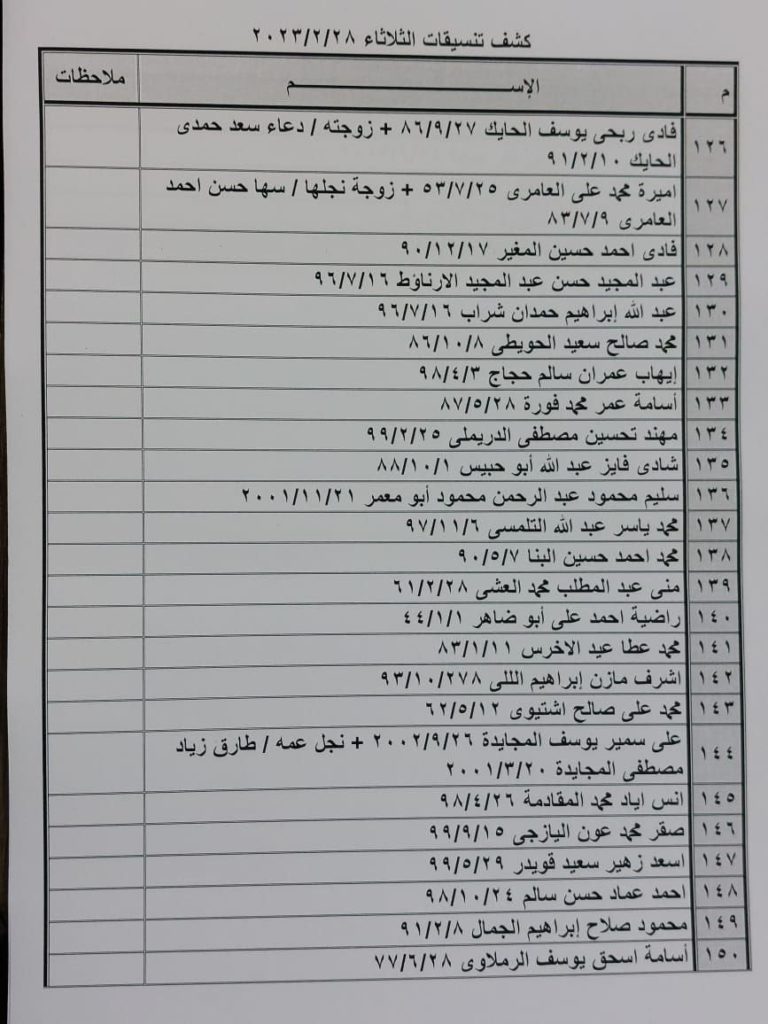 كشف تنسيقات الثلاثاء ٢٠٢٣/٢/٢٨
م الإســـــــــم ملاحظات
١٢٦ فادى ربحى يوسف الحايك ٨٦/٩/٢٧ + زوجته / دعاء سعد حمدى
الحايك ٩١/٢/١٠
١٢٧ اميرة محمد على العامرى ٥٣/٧/٢٥ + زوجة نجلها / سها حسن احمد
العامرى ٨٣/٧/٩
١٢٨ فادى احمد حسين المغير ٩٠/١٢/١٧
١٢٩ عبد المجيد حسن عبد المجيد الارناؤط ٩٦/٧/١٦
١٣٠ عبد الله إبراهيم حمدان شراب ٩٦/٧/١٦
١٣١ محمد صالح سعيد الحويطى ٨٦/١٠/٨
١٣٢ إيهاب عمران سالم حجاج ٩٨/٤/٣
١٣٣ أسامة عمر محمد فورة ٨٧/٥/٢٨
١٣٤ مهند تحسين مصطفى الدريملى ٩٩/٢/٢٥
١٣٥ شادى فايز عبد الله أبو حبيس ٨٨/١٠/١
١٣٦ سليم محمود عبد الرحمن محمود أبو معمر ٢٠٠١/١١/٢١
١٣٧ محمد ياسر عبد الله التلمسى ٩٧/١١/٦
١٣٨ محمد احمد حسين البنا ٩٠/٥/٧
١٣٩ منى عبد المطلب محمد العشى ٦١/٢/٢٨
١٤٠ راضية احمد على أبو ضاهر ٤٤/١/١
١٤١ محمد عطا عيد الاخرس ٨٣/١/١١
١٤٢ اشرف مازن إبراهيم اللى ٩٣/١٠/٢٧٨
١٤٣ محمد على صالح اشتيوى ٦٢/٥/١٢
١٤٤ على سمير يوسف المجايدة ٢٠٠٢/٩/٢٦ + نجل عمه / طارق زياد
مصطفى المجايدة ٢٠٠١/٣/٢٠
١٤٥ انس اياد محمد المقادمة ٩٨/٤/٢٦
١٤٦ صقر محمد عون اليازجى ٩٩/٩/١٥
١٤٧ اسعد زهير سعيد قويدر ٩٩/٥/٢٩
١٤٨ احمد عماد حسن سالم ٩٨/١٠/٢٤
١٤٩ محمود صلاح إبراهيم الجمال ٩١/٢/٨
١٥٠ أسامة اسحق يوسف الرملاوى ٧٧/٦/٢٨